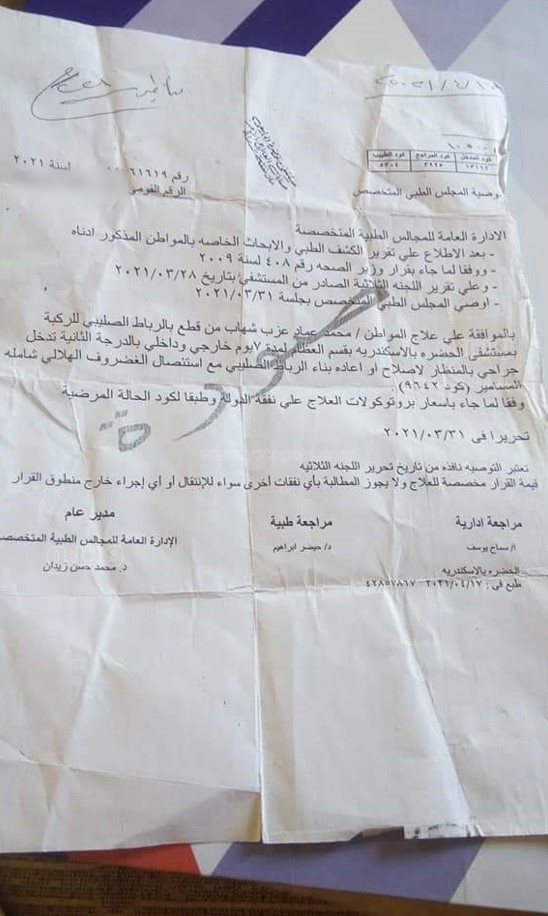 كود المدخل كود المراجع كود الطبيب
١٣١٦٦ ٣٩٢٥ ٥٣٠٤
رقم ٦١٦١٩ لسنة ٢٠٢١
الرقم القومي
توصية المجلس الطبي المتخصص
الإدارة العامة للمجالس الطبية المتخصصة
- بعد الاطلاع علي تقرير الكشف الطبي والابحاث الخاصه بالمواطن المذكور ادناه
- ووفقا لما جاء بقرار وزير الصحه رقم ٤٠٨ لسنة ٢٠٠٩
- وعلي تقرير اللجنه الثلاثة الصادر من المستشفي بتاريخ ٢٠٢١/٠٣/٢٨
- اوصي المجلس الطبي المتخصص بجلسة ٢٠٢١/٠٣/٣١
بالموافقة علي علاج المواطن / محمد عماد عزب شهاب من قطع بالرباط الصليبي للركبة
بمستشفى الحضره بالاسكندريه بقسم العظام لمدة ٧يوم خارجي وداخلي بالدرجة الثانية تدخل
جراحي بالمنظار لاصلاح او اعاده بناء الرباط الصليبي مع استئصال الغضروف الهلالي شامله
المسامير (كود ٩٦٤٧)
وفقا لما جاء باسعار بروتوكولات العلاج علي نفقة الدولة وطبقا لكود الحالة المرضية
صورة
تحريرا فى ٢٠٢١/٠٣/٣١
تعتبر التوصيه نافذه من تاريخ تحرير اللجنه الثلاثيه
قيمة القرار مخصصة للعلاج ولا يجوز المطالبة بأي نفقات أخرى سواء للإنتقال أو أي إجراء خارج منطوق القرار
مراجعة ادارية مراجعة طبية مدير عام
الإدارة العامة للمجالس الطبية المتخصصة
ا/ سماح يوسف د/ حيضر ابراهيم د. محمد حسن زيدان
الحضره بالاسكندريه
طبع فى : ٢٠٢١/٠٤/١٧ ٤٢٨٥٧٨١٧